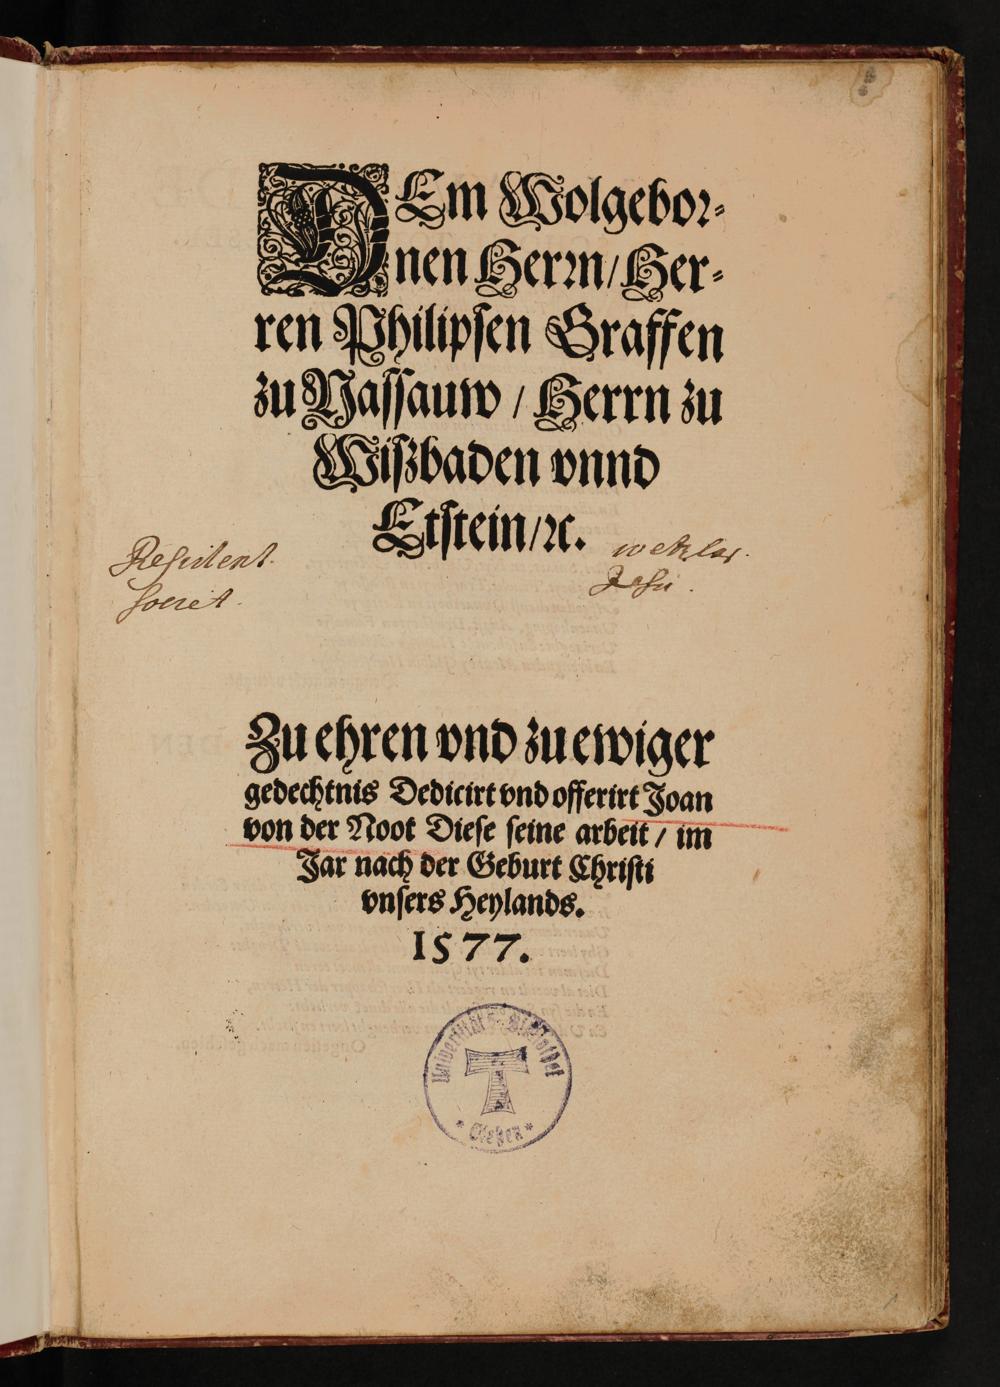 DEm Wolgebor-
nen Herrn/ Her-
ren Philipsen Graffen
zu Nassauw / Herrn zu
Wißbaden vnnd
Etstein/ꝛc.
Residentiæ wetzlar.
Societ. Jesu.
Zu ehren vnd zu ewiger
gedechtnis Dedicirt vnd offerirt Joan
von der Noot Diese seine arbeit / im
Jar nach der Geburt Christi
vnsers Heylands.
1577.
Universitäts-Bibliothek
* Gießen *